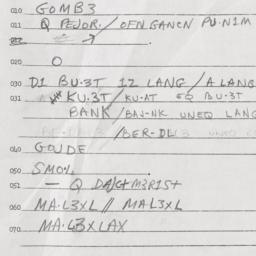 010 GOMB3
011 Q PEJOR./OFNGANCN PU.N1M
012
020 O
030 D1 BU.3T 12 LANG / A LANG
031 KU.3T/KU-AT EQ BU-3T
BANK/BAJ-NK UNEQ LANG
/BER-DL
040 GOJDE
050 SMO%
052 — Q DAJCH M3RIST
060 MA.L3XL // MAL3XL
070 MA.L3XLAX